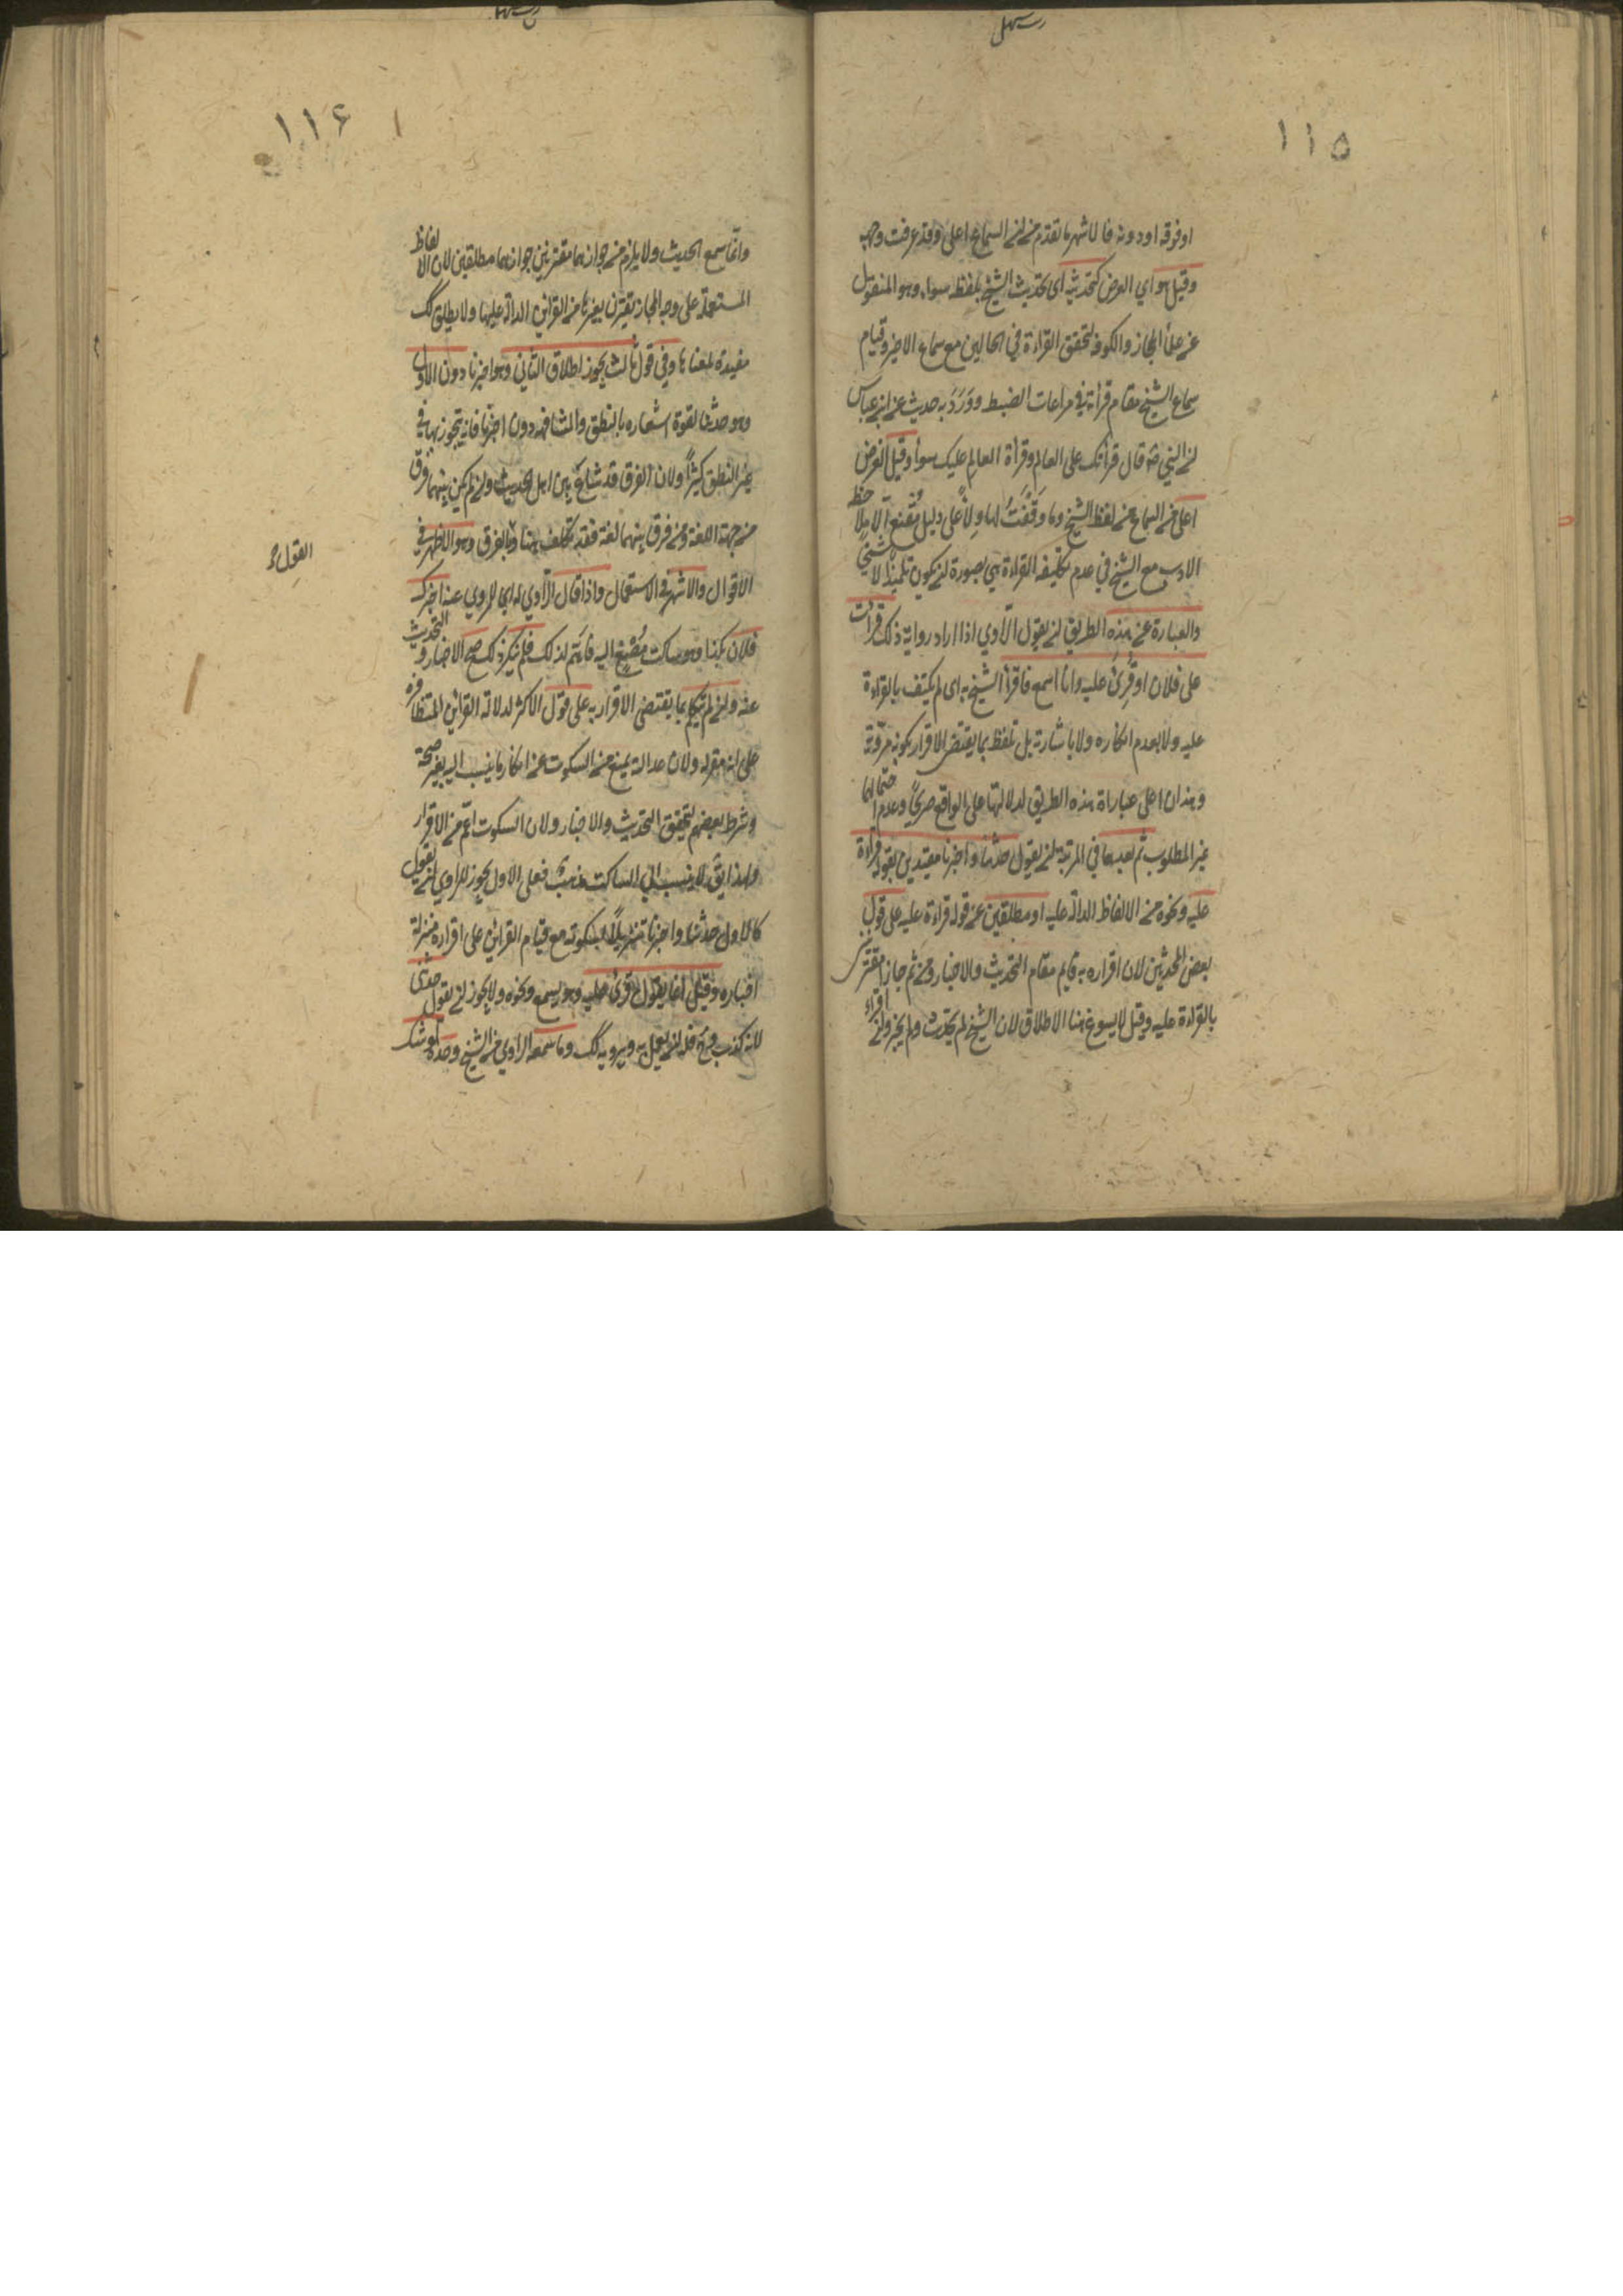 ١١٥
او فوقه او دونه فالاشهر ما تقدم من ان السماع اعلى وقد عرفت وجهه
وقيل هو اي العرض كتحديثه اي تحديث الشيخ بلفظه سواء وهو المنقول
عن علماء الحجاز والكوفة لتحقق القراءة في الحالين مع سماع الاخر وقيام
سماع الشيخ مقام قرأته في مراعات الضبط ووَرَدَ به حديث عن ابن عباس
ان النبي قال قرأتك على العالم وقرأة العالم عليك سواء وقيل العرض
اعلى من السماع من لفظ الشيخ وما وقفت لهاولاء على دليل مقنع الا ملاحظة
الادب مع الشيخ في عدم تكليفه القراءة هي بصورة ان يكون تلميذا لا شيخاً
والعبارة عن هذه الطريق ان يقول الراوي اذا اراد رواية ذلك قرات
على فلان او قرئ عليه وانا اسمع فاقرأ الشيخ به اى لم يكتف بالقراءة
عليه ولا بعدم انكاره ولا باشارته بل تلفظ بما يقتضى الاقرار بكونه مرويّه
وهذان اعلى عباراة هذه الطريق لدلالتها على الواقع صريحاً وعدم احتمالها
غير المطلوب ثم بعدهما في المرتبة ان يقول حدثنا واخبرنا مقيدين بقوله قراءة
عليه ونحوه من الالفاظ الدالة عليه او مطلقين عن قوله قراءة عليه على قول
بعض المحدثين لان اقراره به قايم مقام التحديث والاخبار ومن ثم جازا مقترنين
بالقراءة عليه وقيل لا يسوغ هنا الاطلاق لان الشيخ لم يحدث ولم يخبر وانما اقراء
١١۶
وانما سمع الحديث ولا يلزم من جوازهما مقترنين جوازهما مطلقين لان الالفاظ
المستعملة على وجه المجاز تقترن بغيرها من القراين الدالة عليها ولا يطلق كك
مفيدة لمعناها وفي قول ثالث يجوز اطلاق الثاني وهو اخبرنا دون الاول
وهو حدثنا لقوة اشعاره بالنطق والمشافهه دون اخبرنا فانه يتجوز بها في
غير النطق كثيراً ولان الفرق قد شاع بين اهل الحديث وان لم يكن بينهما فرق
من جهة اللغة ومن فرق بينهما لغة فقد تكلف وهذا القول بالفرق وهو الاظهر في
القول
الاقوال والاشهر في الاستعمال واذا قال الراوي له اي للمروي عنه اخبرك
فلان بكذا وهو ساكت مُصْغٍ اليه فاهم لذلك فلم ينكر ذلك صح الاخبار والتحديث
عنه وان لم يتكلم بما يقتضى الاقرار به على قول الاكثر لدلالة القراين المتظافرة
على انه مقر به ولان عدالته تمنع من السكوت عن انكار ما ينسب اليه بغير صحة
وشرط بعضهم لتحقق التحديث والاخبار ولان السكوت اعم من الاقرار
ولهذا يق لا ينسب الى الساكت مذهب فعلى الاول يجوز للراوي ان يقول
كالاول حدثنا واخبرنا تنزيلاً لسكوته مع قيام القراين على اقراره منزلة
اخباره وقيل انما يقول قرئ عليه وهو يسمع ونحوه ولا يجوز ان يقول حدثنى
لانه كذب وح فله ان يعمل به ويرويه كك وما سمعه الراوي من الشيخ وحده او شك